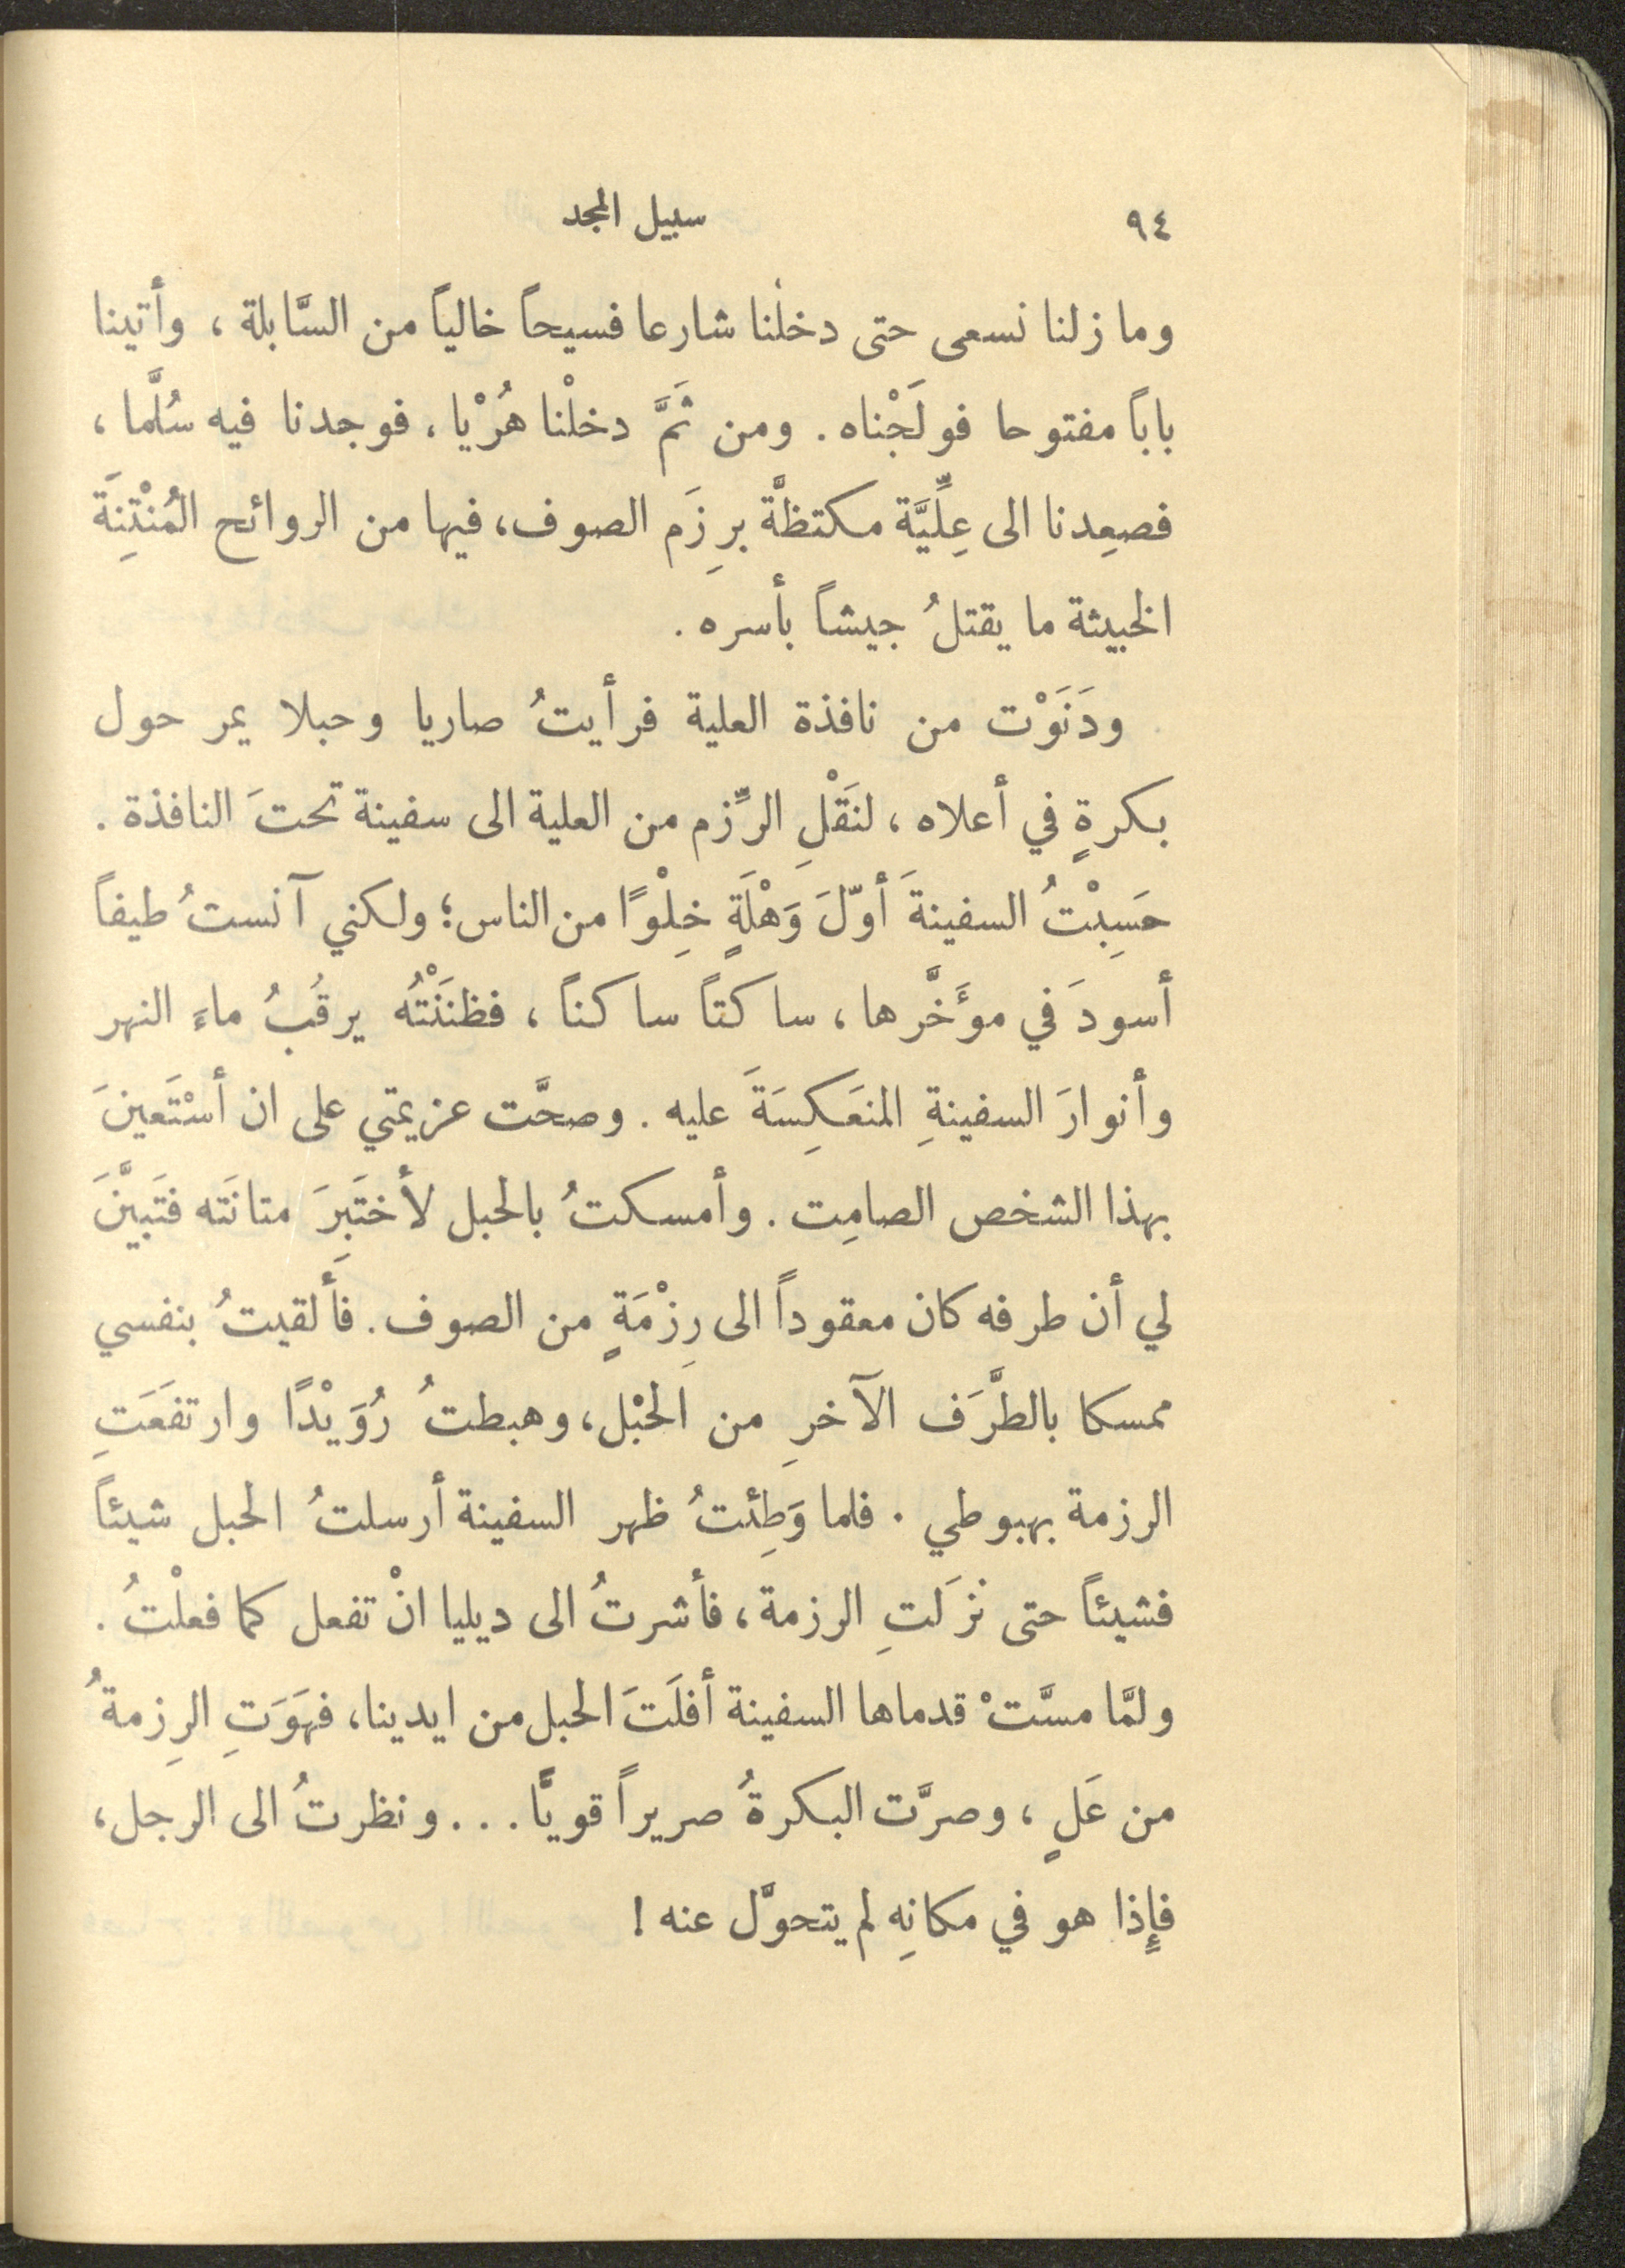 ٩٤
سبيل المجد
وما زلنا نسعى حتى دخلْنا شارعا فسيحاً خالياً من السَّابلة ، وأتينا
باباً مفتوحا فولَجْناه . ومن ثَمَّ دخلْنا هُرْيا ، فوجدنا فيه سُلَّما ،
فصعِدنا الى عِلِّيَّة مكتظَّة برِزَم الصوف ، فيها من الروائح المُنْتِنَة
الخبيثة ما يقتلُ جيشاً بأسره .
ودَنَوْت من نافذة العلية فرأيتُ صاريا وحبلا يمر حول
بكرةٍ في أعلاه ، لنَقْلِ الرِّزم من العلية الى سفينة تحتَ النافذة .
حَسِبْتُ السفينةَ أوّلَ وَهْلَةٍ خِلْوًا من الناس؛ ولكني آنستُ طيفاً
أسودَ في مؤَخَّرها ، ساكتاً ساكناً ، فظنَنْتُه يرقُبُ ماءَ النهر
وأنوارَ السفينةِ المنعَكِسَةَ عليه . وصحَّت عزيمتي على ان أسْتَعينَ
بهذا الشخص الصامِت . وأمسكتُ بالحبل لأختَبِرَ متانَته فتَبيَّنَ
لي أن طرفه كان معقوداً الى رِزْمَةٍ من الصوف . فأَلقيتُ بنفسي
ممسكا بالطَّرَف الآخرِ من الحَبْل ، وهبطتُ رُوَيْدًا وارتفَعَتِ
الرزمة بهبوطي . فلما وَطِئتُ ظهر السفينة أرسلتُ الحبل شيئاً
فشيئاً حتى نزَلتِ الرزمة ، فأشرتُ الى ديليا انْ تفعل كما فعلْتُ .
ولمَّا مسَّتْ قدماها السفينة أفلَتَ الحبل من ايدينا ، فهَوَتِ الرِزمةُ
من عَلٍ ، وصرَّت البكرةُ صريراً قويًّا . . . ونظرتُ الى الرجل ،
فإِذا هو في مكانِه لم يتحوَّل عنه !